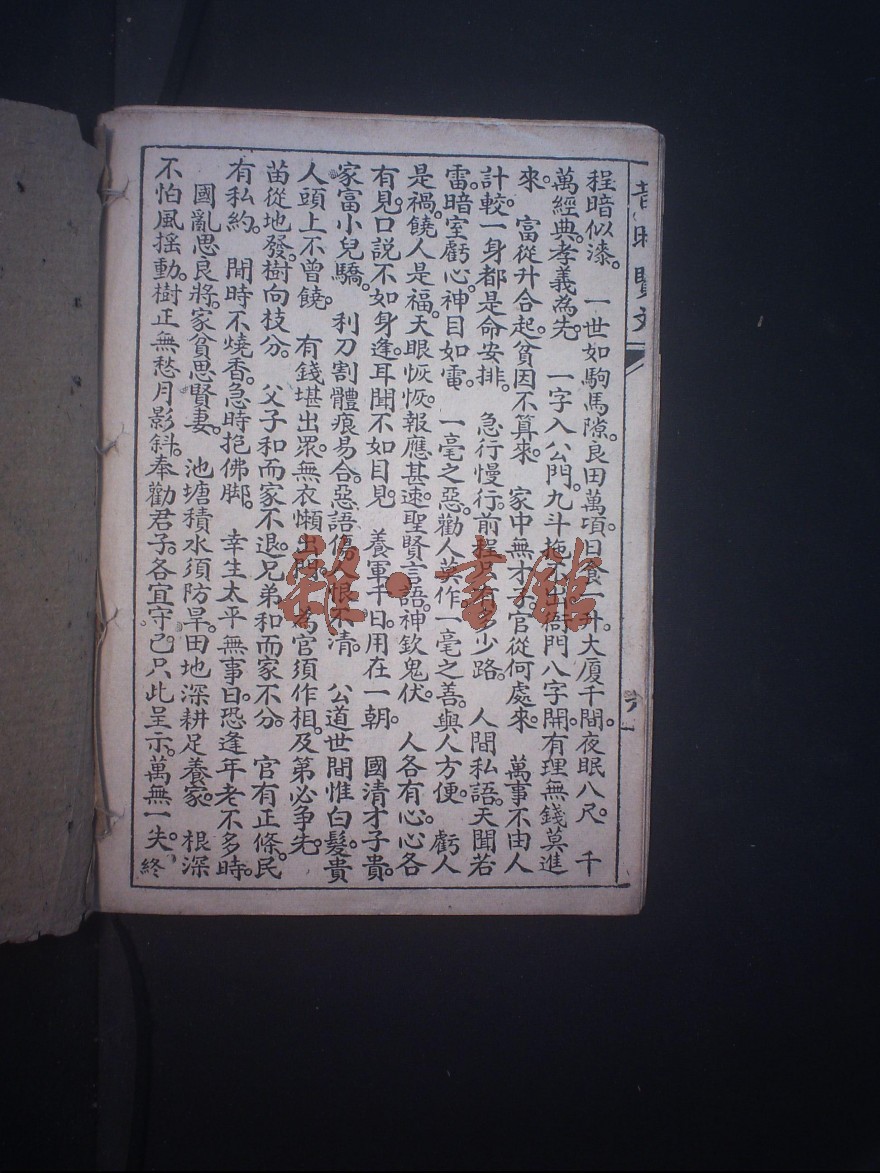 昔時賢文
程暗似漆。 一世如駒馬隙。良田萬頃。日食一升。大廈千間。夜眠八尺。 千
萬經典。孝義為先。 一字入公門。九牛拖不出。衙門八字開。有理無錢莫進
來。 富從升合起。貧因不算來。 家中無才子。官從何處來。 萬事不由人
計較。一身都是命安排。 急行慢行。前程只有多少路。 人間私語。天聞若
雷。暗室虧心。神目如電。 一毫之惡。勸人莫作。一毫之善。與人方便。 虧人
是禍。饒人是福。天眼恢恢。報應甚速。聖賢言語。神欽鬼伏。 人各有心。心各
有見。口說不如身逢。耳聞不如目見。 養軍千日。用在一朝。 國清才子貴。
家富小兒驕。 利刀割體痕易合。惡語傷人恨不清。 公道世間惟白髮。貴
人頭上不曾饒。 有錢堪出眾。無衣懶出門。 為官須作相。及第必爭先。
苗從地發。樹向枝分。 父子和而家不退。兄弟和而家不分。 官有正條。民
有私約。 閒時不燒香。急時抱佛脚。 幸生太平無事日。恐逢年老不多時。
國亂思良將。家貧思賢妻。 池塘積水須防旱。田地深耕足養家。 根深
不怕風搖動。樹正無愁月影斜。奉勸君子。各宜守己。只此呈示。萬無一失。終
雜·書館